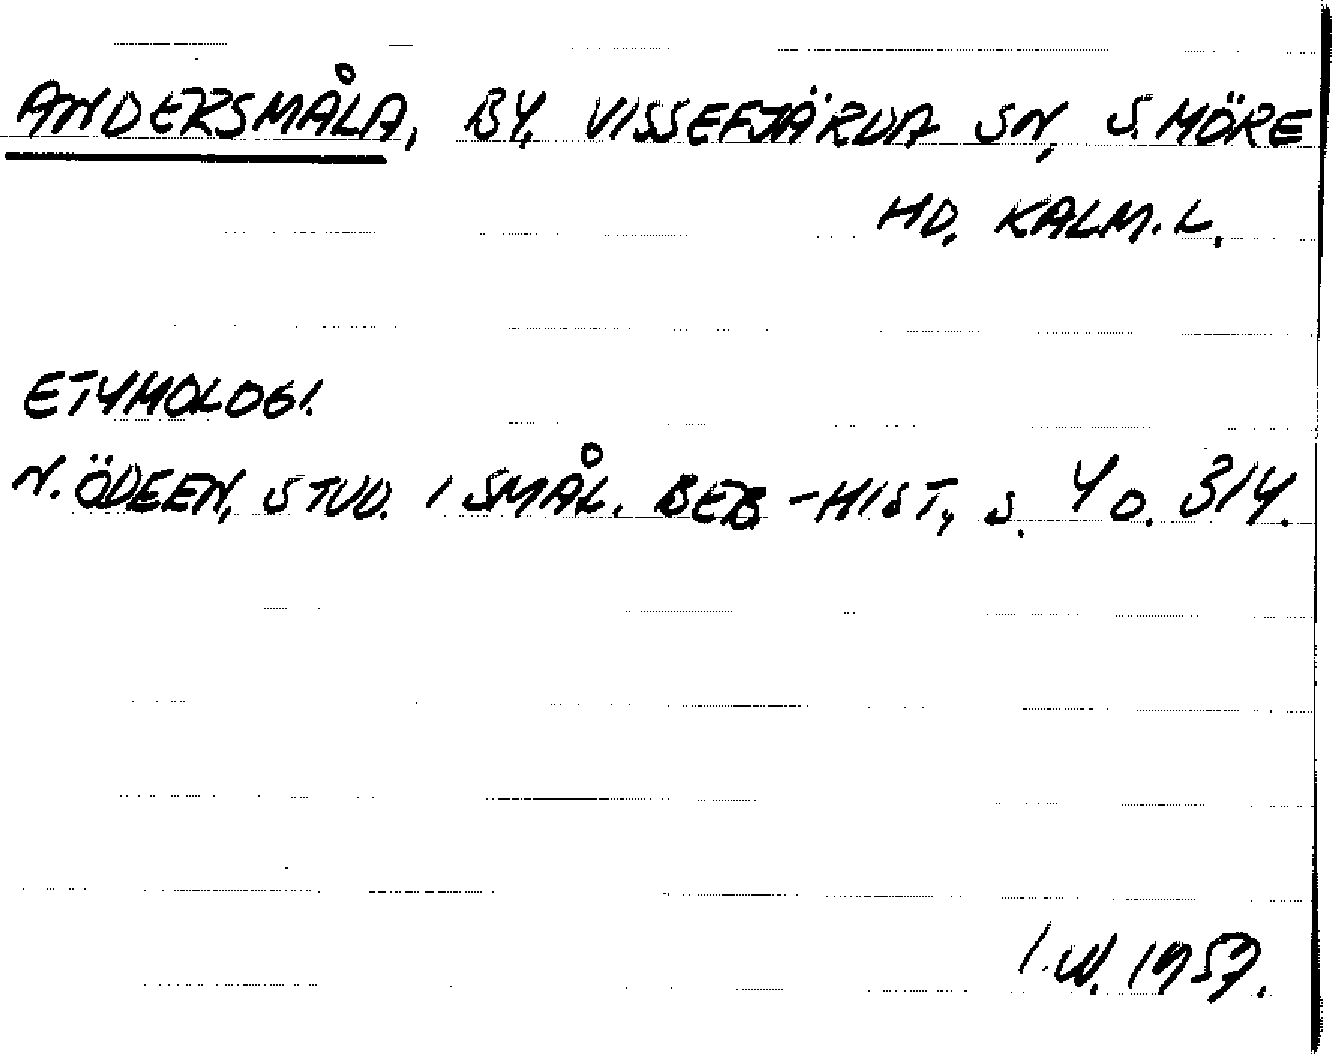 ANDERSMÅLA, BY, VISSEFJÄRDA SN, S. MÖRE
HD, KALM. L.
ETYMOLOGI.
N. ÖDEEN, STUD. I SMÅL. BEB.-HIST., S. 4 O. 314.
I.W. 1957.